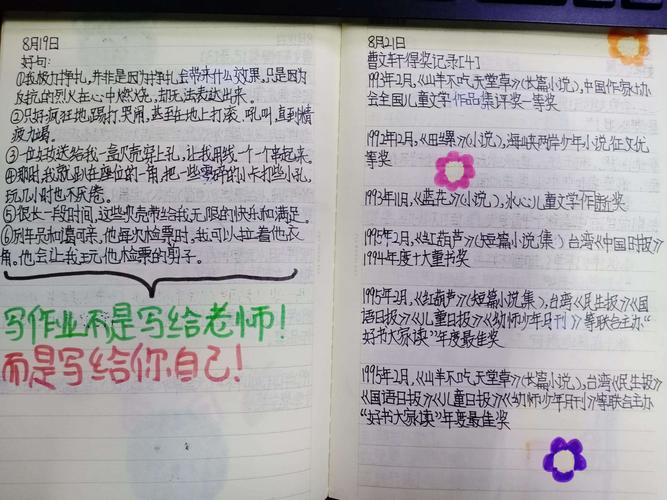 8月19日
好句:
①我极力挣扎,并非是因为挣扎会带来什么效果,只是因为
反抗的烈火在心中燃烧,却无法表达出来。
②只好疯狂地踢打、哭闹,甚至在地上打滚、吼叫,直到精
疲力竭。
③一位女士送给我一盒贝壳穿上孔,让我用线一个个串起来。
④那时,我就趴在座位的一角,把一些零碎的小卡打些小孔,
玩几小时也不厌倦。
⑤很长一段时间,这些贝壳带给我无限的快乐和满足。
⑥列车员和蔼可亲,他每次检票时,我可以拉着他衣
角。他会让我玩他检票的剪子。
写作业不是写给老师!
而是写给你自己!
8月21日
曹文轩得奖记录[4]
1992年2月,《山羊不吃天堂草》(长篇小说),中国作家协
会全国儿童文学作品集评奖一等奖
1992年2月,《田螺》(小说),海峡两岸少年小说征文优
等奖
1993年11月,《蓝花》(小说),冰心儿童文学作新奖
1995年2月,《红葫芦》(短篇小说集)台湾《中国日报》
1994年度十大童书奖
1995年2月,《红葫芦》(短篇小说集),台湾《民生报》《国
语日报》《儿童日报》《幼师少年月刊》等联合主办"
好书大家读"年度最佳奖
1995年2月,《山羊不吃天堂草》(长篇小说),台湾《民生报》
《国语日报》《儿童日报》《幼师少年月刊》等联合主办
"好书大家读"年度最佳奖